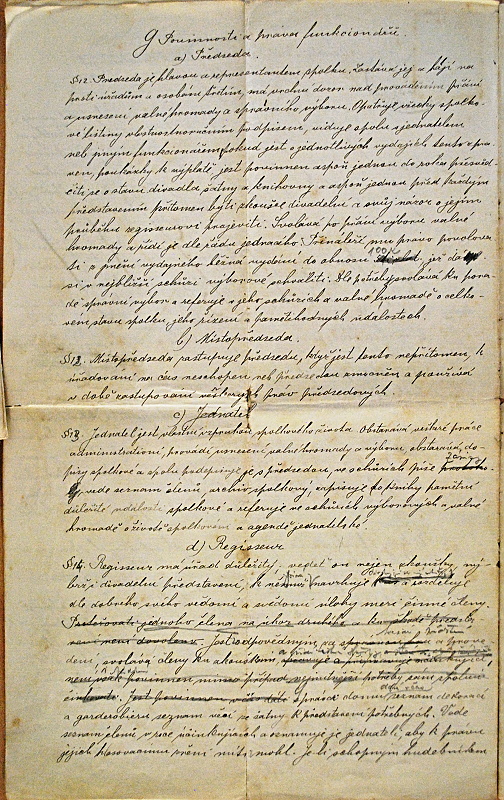 G Povinnosti a práva funkcionářů.
a) Předseda.
§12. Předseda jest hlavou a representantem spolku. Zastává jej a hájí na
proti úřadům a osobám třetím, má vrchní dozor nad prováděním přání
a usnesení valné hromady a správního výboru. Opatřuje všechny spolko-
vé listiny vlastnoručním podpisem, uděluje spolu s jednatelem
neb jiným funkcionářem, pokud jest o jednotlivých vydajích tento zpra-
ven, poukázky k výplatě, jest povinnen aspoň jednou do roka přesvěd
čiti se o stavu divadla, šatny a knihovny a aspoň jednou před každým
představením přítomen býti zkoušce divadelní a svůj názor o jejím
průběhu regisseurovi projeviti. Svolává po přání výboru valné
hromady a řídí je dle řádu jednacího. Přenáleží mu právo povolova
ti z jmění vydajného běžná vydání do obnosu jež dá
si v nejbližší schůzi výborové schváliti. Dle potřeby svolává ku pora
dě správní výbor a referuje v jeho schůzích a valné hromadě o celko-
vém stavu spolku, jeho řízení a pamětihodných událostech.
b) Místopředseda.
§13. Místopředseda zastupuje předsedu, když jest tento nepřítomen, k
úřadování na čas neschopen neb předsedou zmocněn a používá
v době zastupování veškerých práv předsedových.
c) Jednatel
§13. Jednatel jest vlastní vzpruhou spolkového života. Obstarává veškeré práce
administrativní, provádí usnesení valné hromady a výboru, obstarává do-
pisy spolkové a spolu podepisuje je s předsedou, ve schůzích píše zápisy
vede seznam členů, archiv spolkový, zapisuje do knihy pamětní
důležité události spolkové a referuje ve schůzích výborových a valné
hromadě o životě spolkovém a agendě jednatelské.
d) Regisseur
§14. Regisseur má úřad důležitý: vedeť on nejen zkoušky, ný-
brž i divadelní představení, k nimž navrhuje a rozděluje
dle dobrého svého vědomí a svědomí úlohy mezi činné členy.
jednoho člena na úkor druhého a
Jest odpovědným za
dění, svolává členy ku zkouškám
povinnen
opráví domu, seznam dekorací
a garderobiéru seznam věcí ze šatny k představení potřebných. Vede
seznam členů v roce účinkujících a oznamuje je jednateli, aby k právu
jejich hlasovacímu zření míti mohl. Je-li schopným hudebníkem